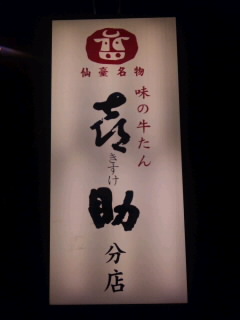 仙臺名物
味の牛たん
喜助
きすけ
分店